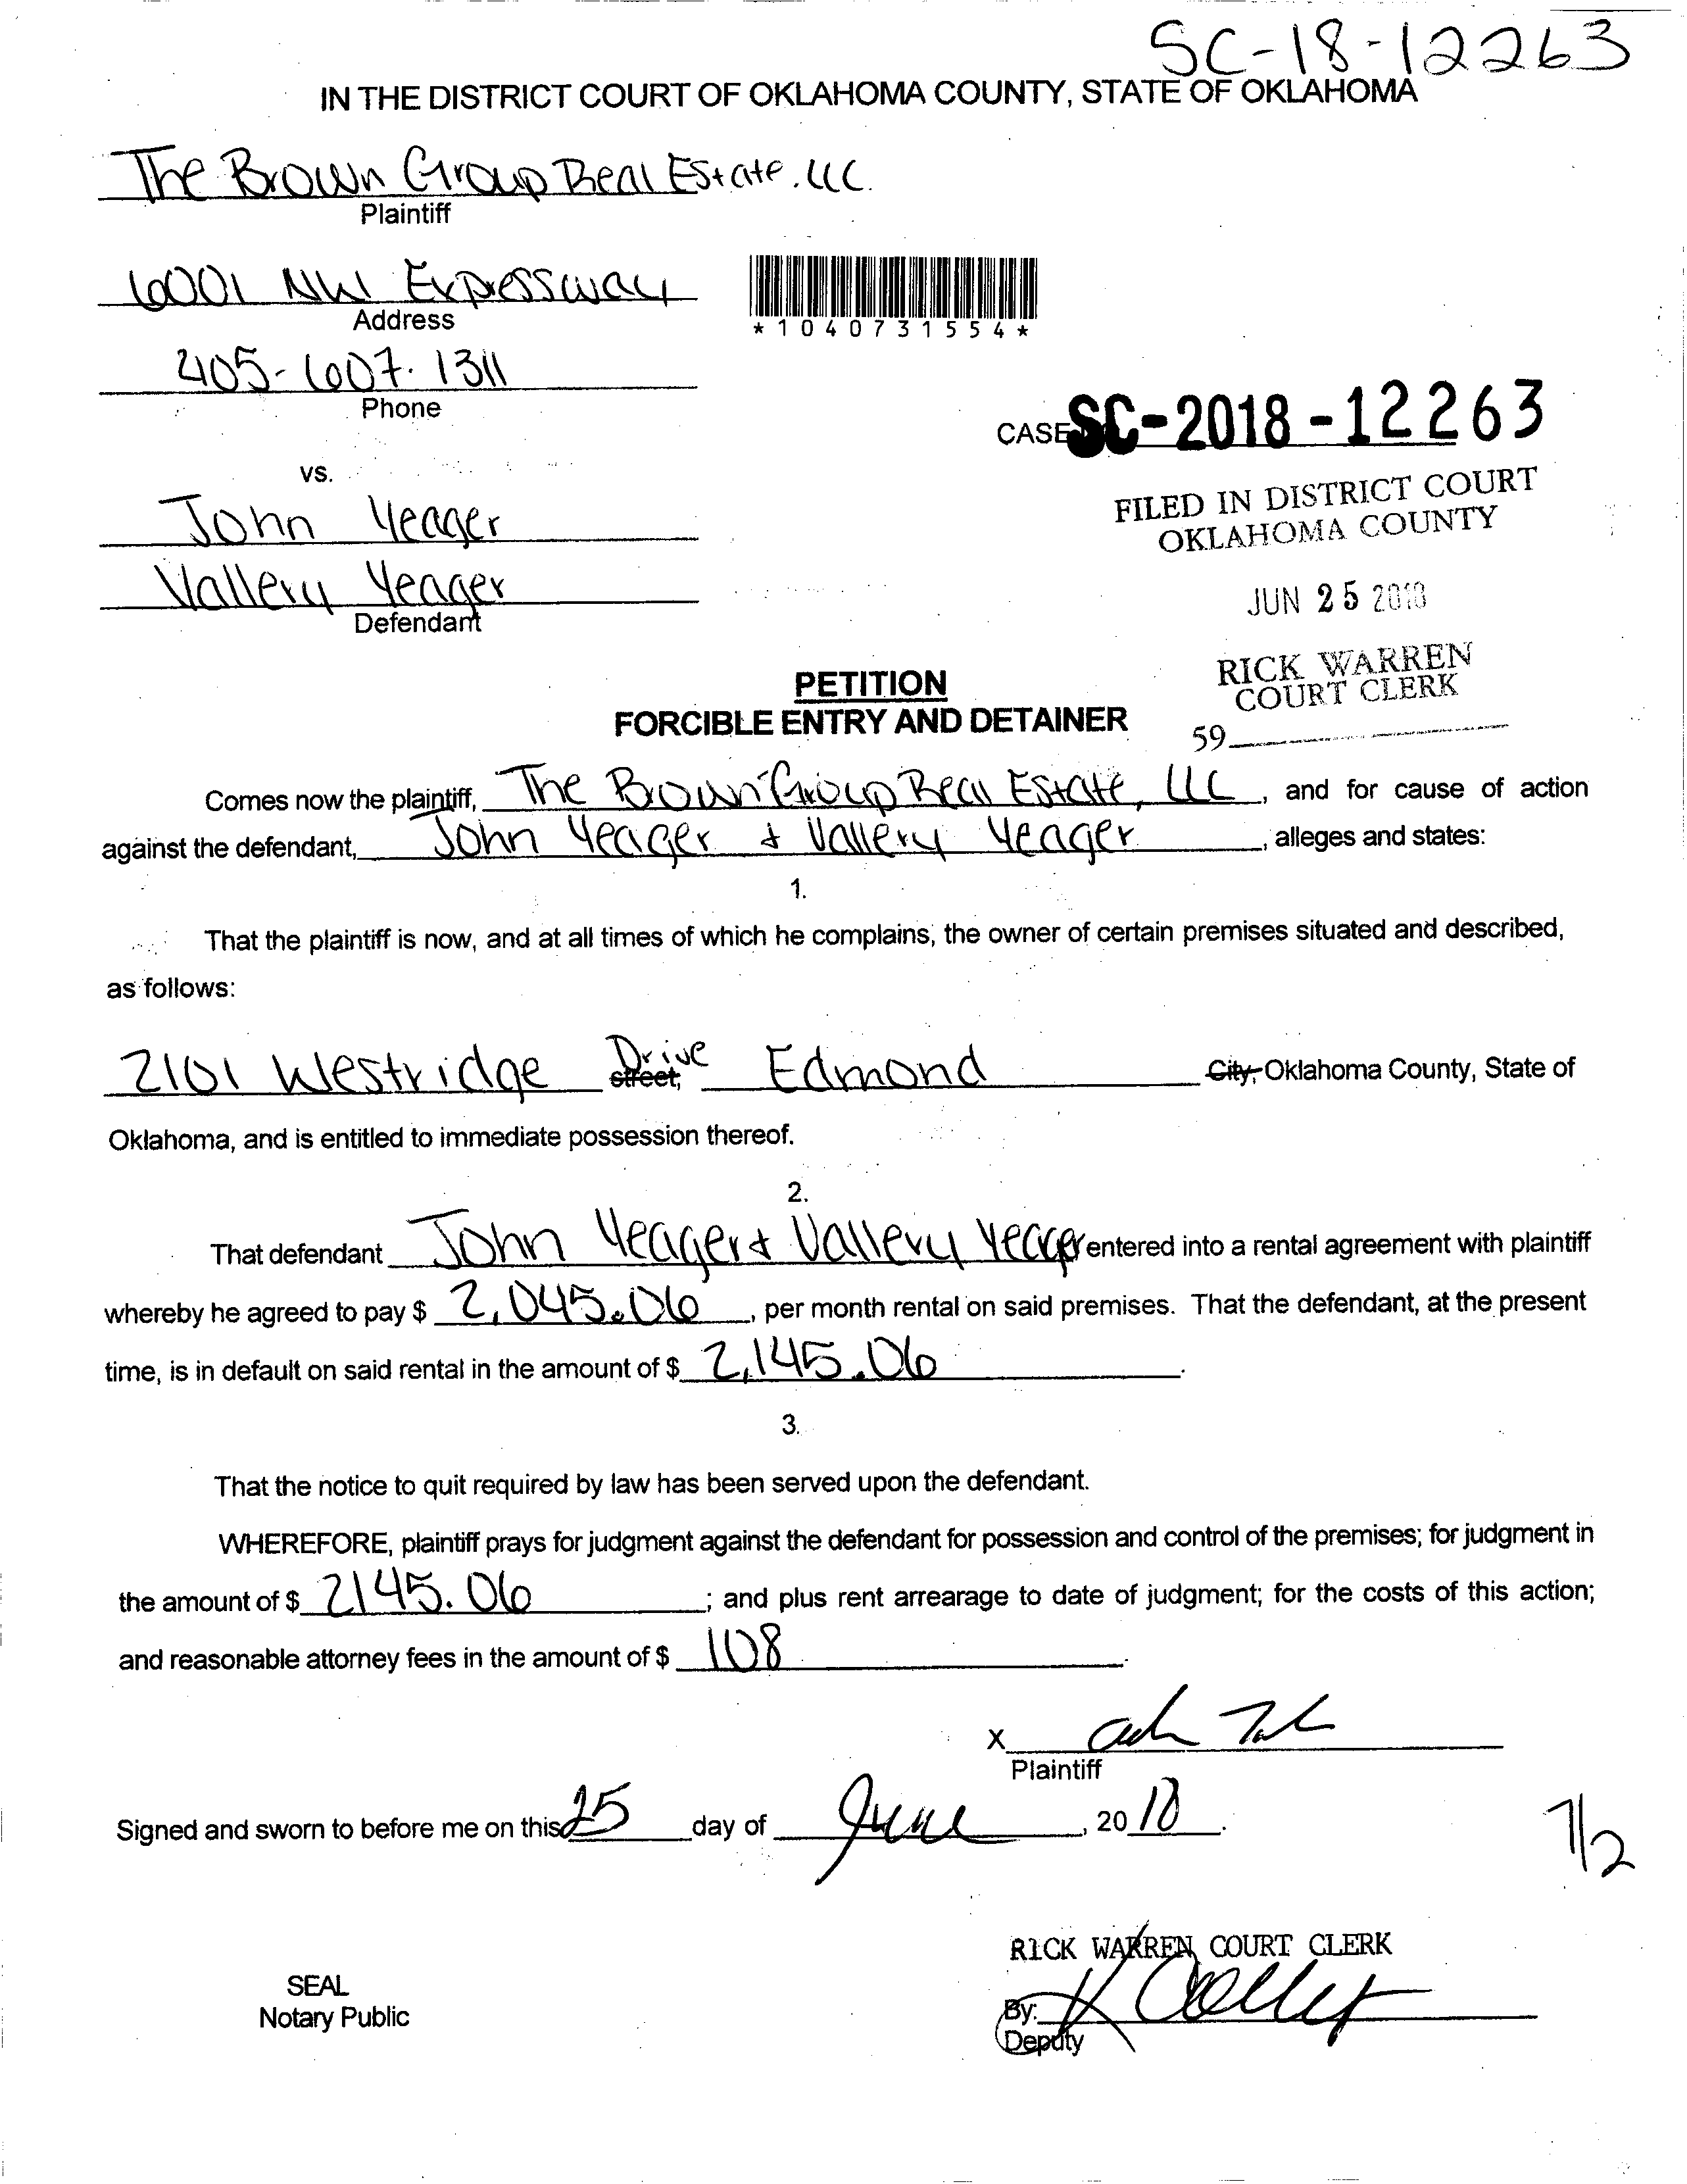 SC-18-12263
IN THE DISTRICT COURT OF OKLAHOMA COUNTY, STATE OF OKLAHOMA
The Brown Group Real Estate, LLC.
Plaintiff
6001 NW Expressway
Address
*1040731554*
405-607-1311
Phone
CASE SC-2018-12263
vs.
FILED IN DISTRICT COURT
OKLAHOMA COUNTY
John Yeager
Vallery Yeager
Defendant
JUN 25 2018
RICK WARREN
COURT CLERK
59
PETITION
FORCIBLE ENTRY AND DETAINER
Comes now the plaintiff, The Brown Group Real Estate, LLC, and for cause of action
against the defendant, John Yeager & Vallery Yeager, alleges and states:
1.
That the plaintiff is now, and at all times of which he complains, the owner of certain premises situated and described,
as follows:
2101 Westridge Drive street, Edmond City, Oklahoma County, State of
Oklahoma, and is entitled to immediate possession thereof.
2.
That defendant John Yeager & Vallery Yeager entered into a rental agreement with plaintiff
whereby he agreed to pay $ 2,045.06, per month rental on said premises. That the defendant, at the present
time, is in default on said rental in the amount of $ 2,145.06.
3.
That the notice to quit required by law has been served upon the defendant.
WHEREFORE, plaintiff prays for judgment against the defendant for possession and control of the premises; for judgment in
the amount of $ 2145.06; and plus rent arrearage to date of judgment; for the costs of this action;
and reasonable attorney fees in the amount of $ 108.
X
Plaintiff
Signed and sworn to before me on this 25 day of June, 2018.
7/2
RICK WARREN COURT CLERK
SEAL
Notary Public
By:
Deputy